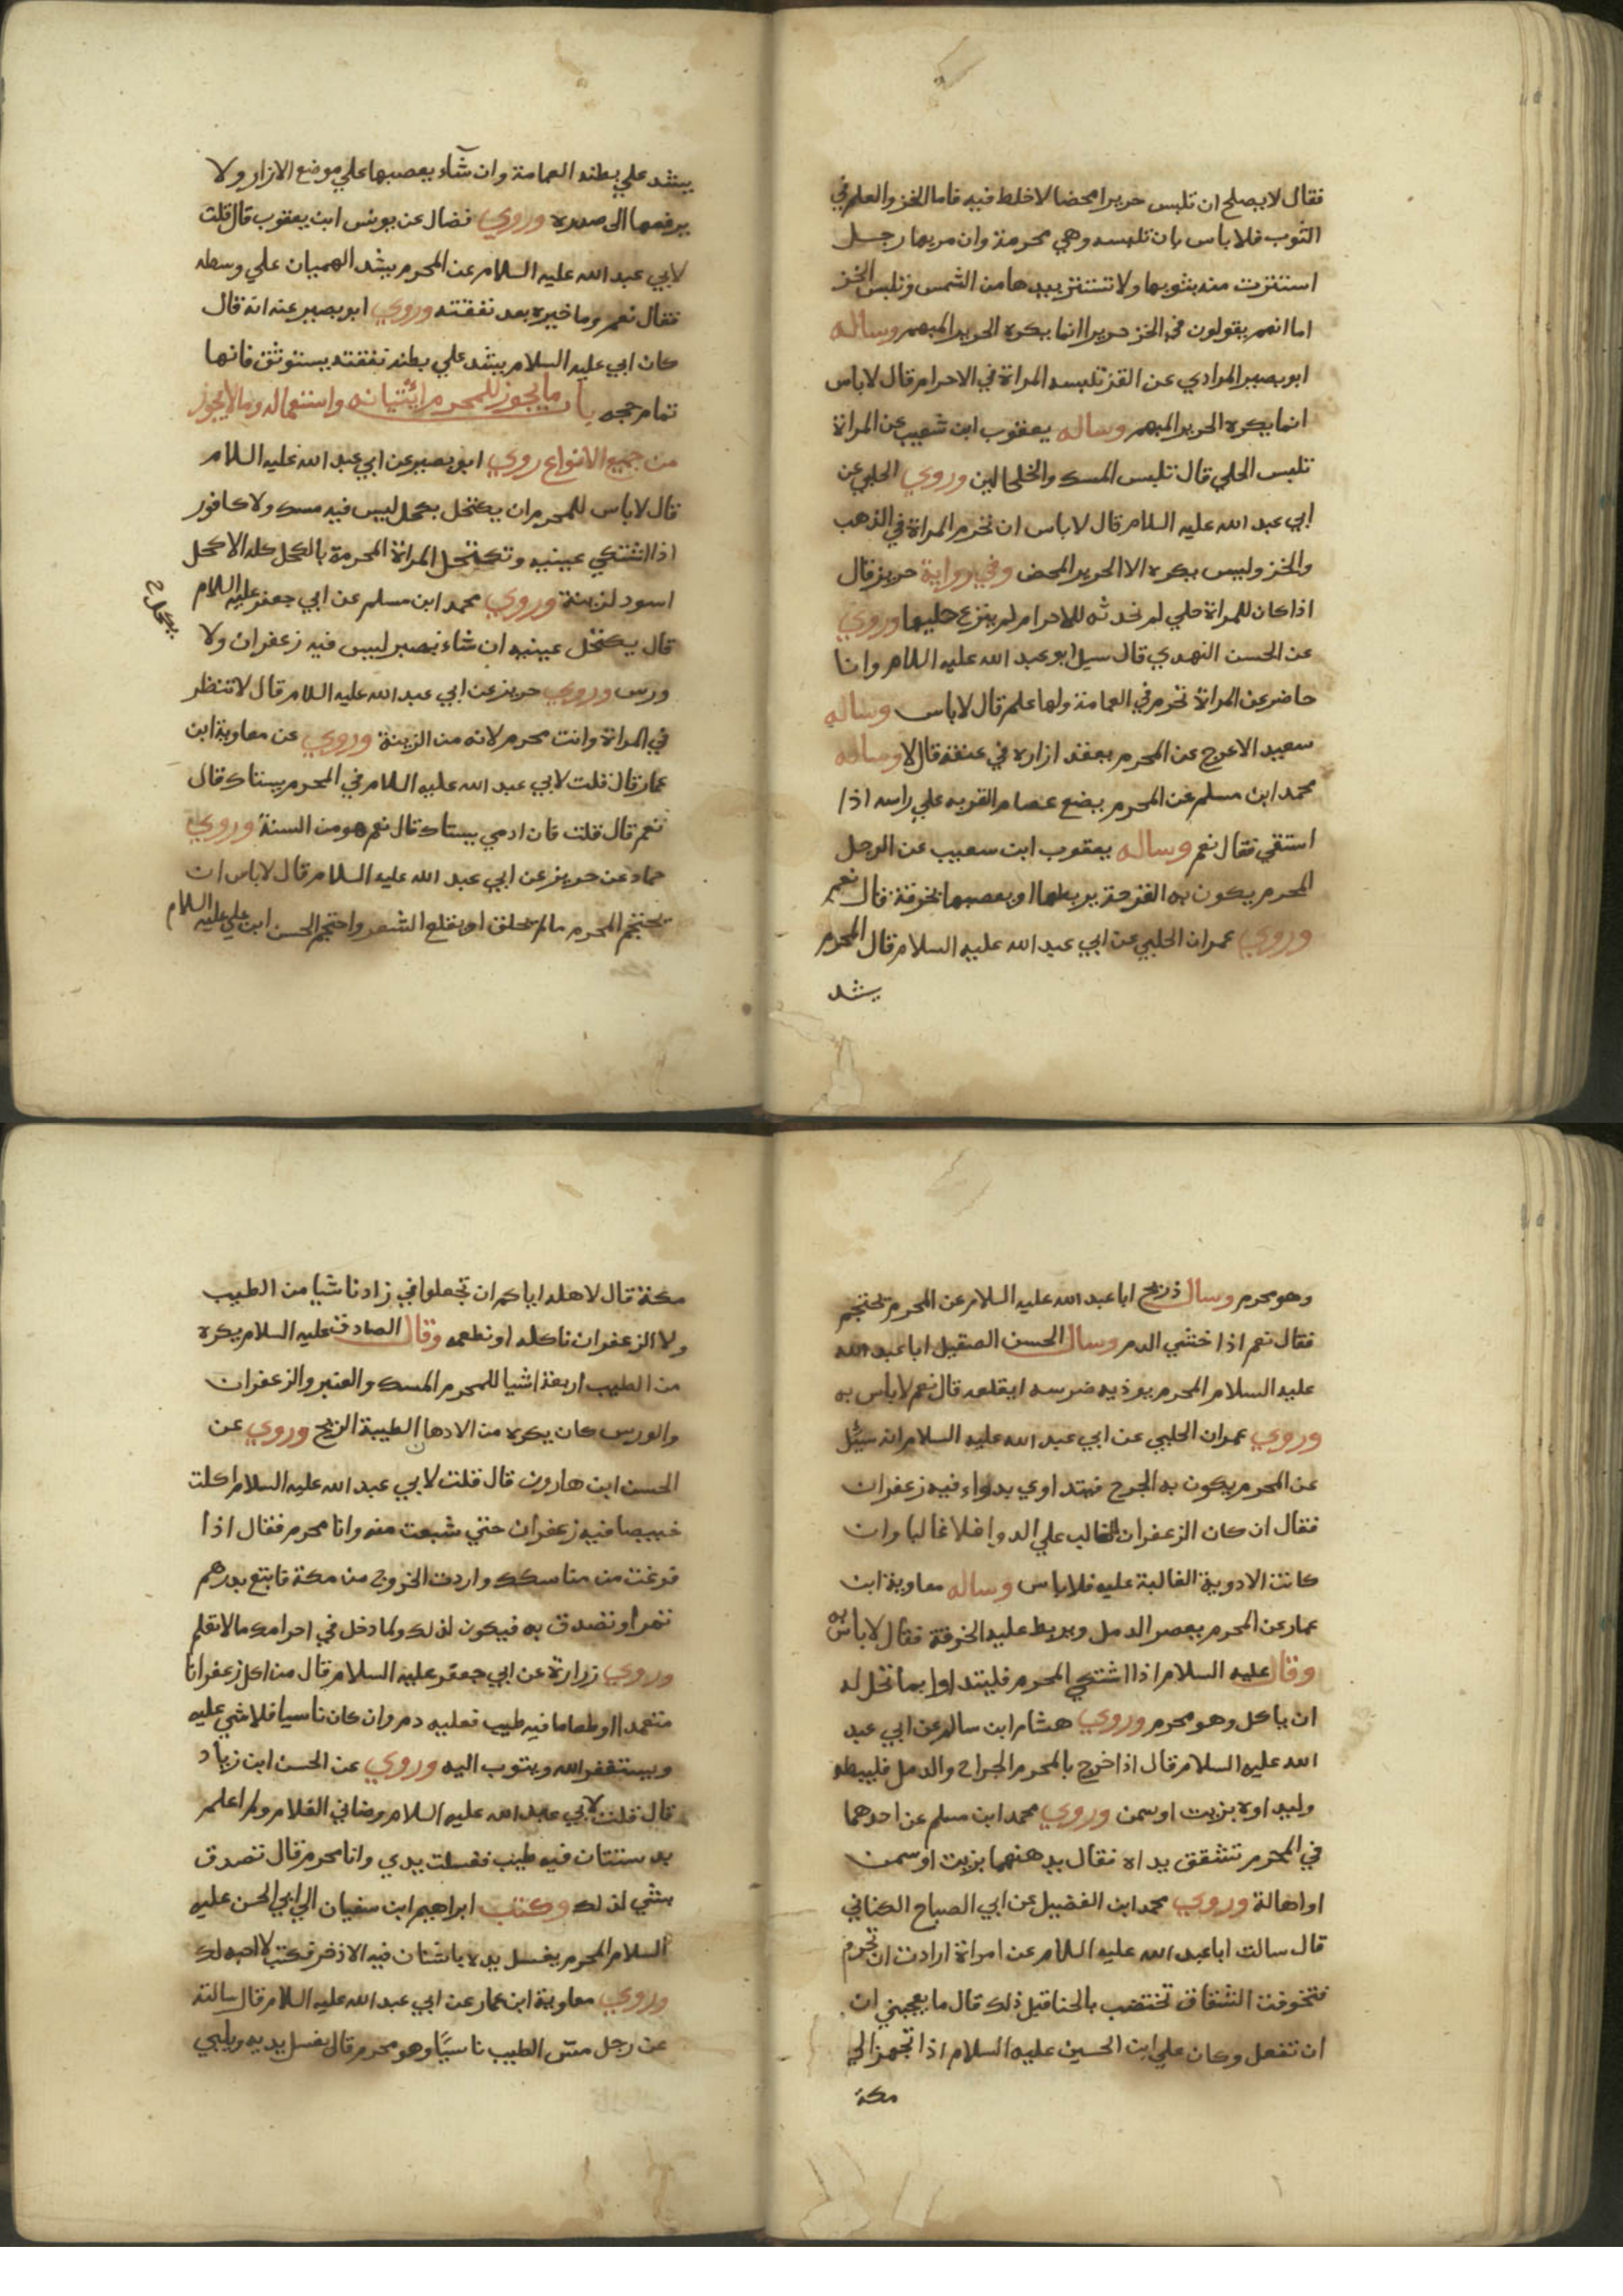 فقال لا يصلح ان تلبس حريرا محضا لا خلط فيه فاما الخز والعلم في
الثوب فلا باس بان تلبسه وهي محرمة وان مر بها رجل
استترت منه بثوبها ولا تستتر بيدها من الشمس وتلبس الخز
اما انهم يقولون في الخز حريرا انما يكره الحرير المبهم وساله
ابو بصير المرادي عن القز تلبسه المراة في الاحرام قال لا باس
انما يكره الحرير المبهم وساله يعقوب ابن شعيب عن المراة
تلبس الحلي قال تلبس المسك والخلخالين وروي الحلبي عن
ابي عبد الله عليه السلام قال لا باس ان تحرم المراة في الذهب
والخز وليس يكره الا الحرير المحض وفي رواية حريز قال
اذا كان للمراة حلي لم تحدثه للاحرام لم ينزع حليها وروي
عن الحسن النهدي قال سيل ابو عبد الله عليه السلام وانا
حاضر عن المراة تحرم في العمامة ولها علم قال لا باس وساله
سعيد الاعرج عن المحرم يعقد ازاره في عنقه قال لا وساله
محمد ابن مسلم عن المحرم يضع عصام القربه علي راسه اذا
استقي فقال نعم وساله يعقوب ابن سعيب عن الرجل
المحرم يكون به القرحة يربطها او يعصبها بخرقة قال نعم
وروي عمران الحلبي عن ابي عبد الله عليه السلام قال المحرم
يشد
يشد علي بطنه العمامة وان شآء يعصبها علي موضع الازار ولا
يرفعها الى صدره وروي فضال عن يونس ابن يعقوب قال قلت
لابي عبد الله عليه السلام عن المحرم يشد الهميان علي وسطه
فقال نعم وما خيره بعد نفقته وروي ابو بصير عنه انه قال
كان ابي عليه السلام يشد علي بطنه نفقته يستوثق فانها
تمام حجه باب ما يجوز للمحرم اتيانه واستعماله وما لا يجوز
من جميع الانواع روي ابو بصير عن ابي عبد الله عليه السلام
قال لا باس للمحرم ان يكتحل بكحل ليس فيه مسك ولا كافور
اذا اشتكي عينيه وتكتحل المراة المحرمة بالكحل كله الا كحل
اسود لزينة وروي محمد ابن مسلم عن ابي جعفر عليه السلام
بكحل
قال يكتحل عينيه ان شاء بصبر ليس فيه زعفران ولا
ورس وروي حريز عن ابي عبد الله عليه السلام قال لا تنظر
في المراة وانت محرم لانه من الزينة وروي عن معاوية ابن
عمار قال قلت لابي عبد الله عليه السلام في المحرم يستاك قال
نعم قال قلت فان ادمي يستاك قال نعم هو من السنة وروي
حماد عن حريز عن ابي عبد الله عليه السلام قال لا باس ان
يحتجم المحرم مالم يحلق او يقلع الشعر واحتجم الحسن ابن علي عليه السلام
وهو محرم وسال ذريح ابا عبد الله عليه السلام عن المحرم يحتجم
فقال نعم اذا خشي الدم وسال الحسن الصيقل ابا عبد الله
عليه السلام المحرم يوذيه ضرسه ايقلعه قال نعم لا باس به
وروي عمران الحلبي عن ابي عبد الله عليه السلام انه سئل
عن المحرم يكون به الجرح فيتداوي بدواء فيه زعفران
فقال ان كان الزعفران الغالب علي الدوا فلا غالبا وان
كانت الادوية الغالبة عليه فلا باس وساله معاوية ابن
عمار عن المحرم يعصر الدمل ويربط عليه الخرقة فقال لا باس به
وقال عليه السلام اذا اشتكي المحرم فليتداوا بما تحل له
ان ياكل وهو محرم وروي هشام ابن سالم عن ابي عبد
الله عليه السلام قال اذا خرج بالمحرم الجراح والدمل فليبطه
وليداوه بزيت او سمن وروي محمد ابن مسلم عن احدهما
في المحرم تتشقق يداه فقال يدهنهما بزيت او سمن
او اهالة وروي محمد ابن الفضيل عن ابي الصباح الكناني
قال سالت ابا عبد الله عليه السلام عن امراة ارادت ان تحرم
فتخوفت الشقاق تختضب بالحنا قبل ذلك قال ما يعجبني ان
ان تفعل وكان علي ابن الحسين عليه السلام اذا تجهز الي
مكة
مكة قال لاهله اياكم ان تجعلوا في زادنا شيا من الطيب
ولا الزعفران ناكله او نطعمه وقال الصادق عليه السلام يكره
من الطيب اربعة اشيا للمحرم المسك والعنبر والزعفران
والورس كان يكره من الادهان الطيبة الريح وروي عن
الحسن ابن هارون قال قلت لابي عبد الله عليه السلام اكلت
خبيصا فيه زعفران حتي شبعت منه وانا محرم فقال اذا
فرغت من مناسكك واردت الخروج من مكة فابتع بدرهم
تمرا وتصدق به فيكون لذلك ولما دخل في احرامك مالا تعلم
وروي زرارة عن ابي جعفر عليه السلام قال من اكل زعفرانا
متعمدا او طعاما فيه طيب فعليه دم وان كان ناسيا فلا شي عليه
ويستغفر الله ويتوب اليه وروي عن الحسن ابن زياد
قال قلت لابي عبد الله عليه السلام وضاني الغلام ولم اعلم
بدستتان فيه طيب فغسلت يدي وانا محرم قال تصدق
بشي لذلك وكتب ابراهيم ابن سفيان الي ابي الحسن عليه
السلام المحرم يغسل يده باشنان فيه الاذخر فكتب لا احبه لك
وروي معاوية ابن عمار عن ابي عبد الله عليه السلام قال سالته
عن رجل مس الطيب ناسيا وهو محرم قال يغسل يديه ويلبي